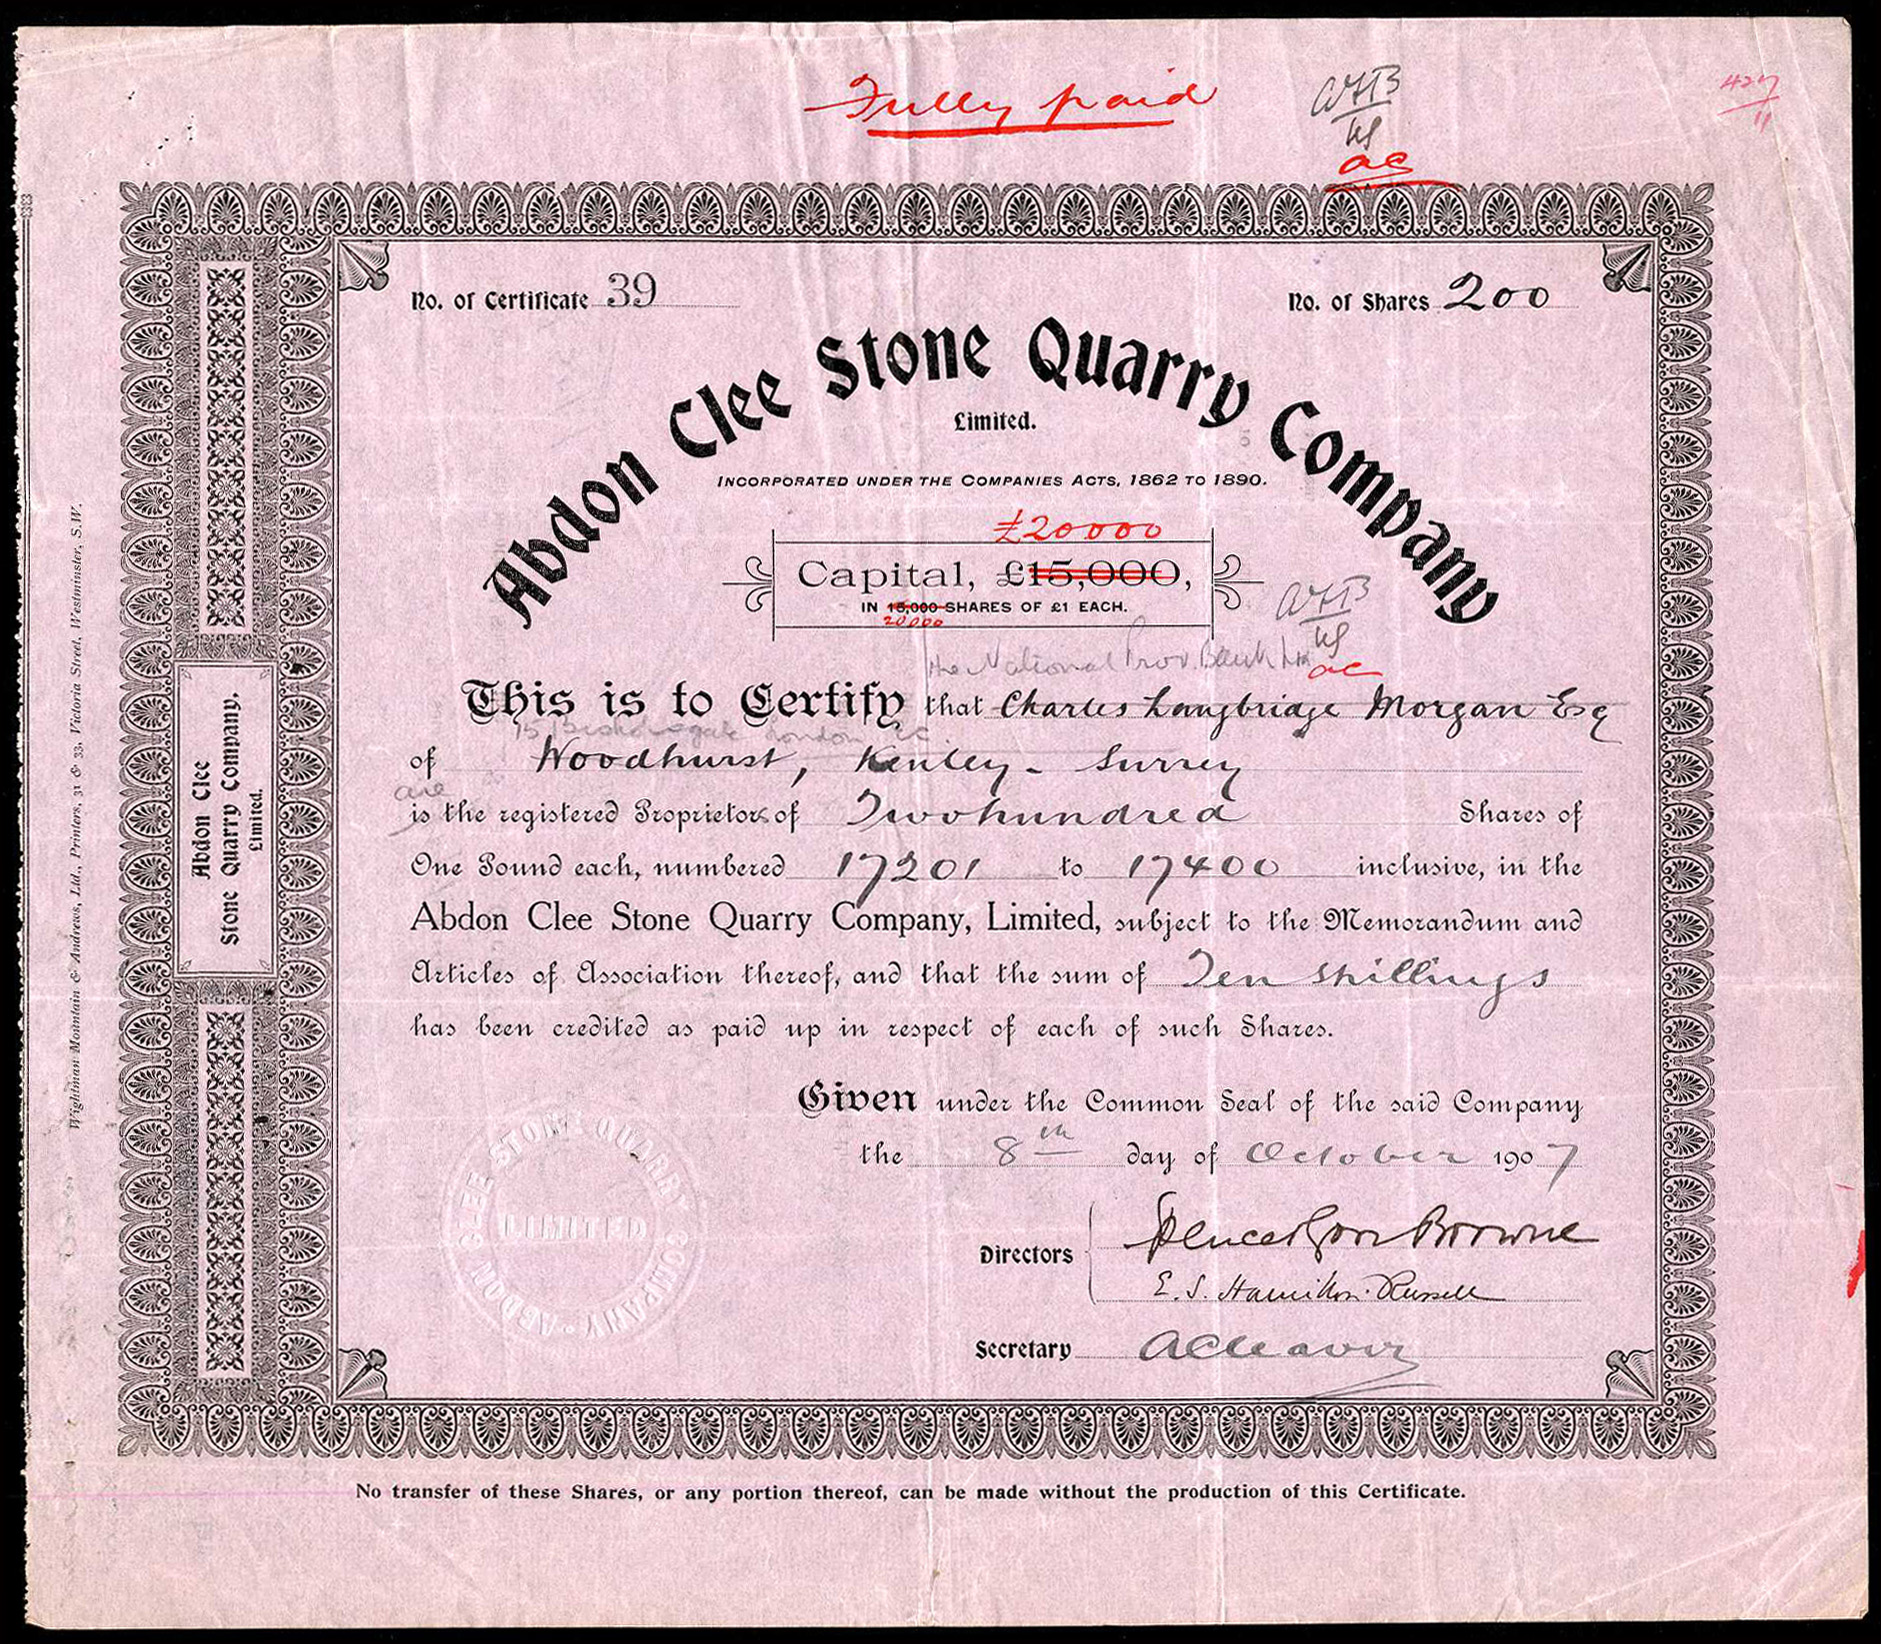 Fully paid
427
11
ac
No. of Certificate 39
No. of Shares 200
Abdon Clee Stone Quarry Company
Limited.
INCORPORATED UNDER THE COMPANIES ACTS, 1862 TO 1890.
£20000
Capital, £15,000,
IN 15,000 SHARES OF £1 EACH.
20000
The National Prov. Bank Ltd
ac
This is to Certify that Charles Langbridge Morgan Esq
15 Bishopsgate London EC
of Woodhurst, Kenley - Surrey
are
is the registered Proprietors of Twohundred Shares of
One Pound each, numbered 17201 to 17400 inclusive, in the
Abdon Clee Stone Quarry Company, Limited, subject to the Memorandum and
Articles of Association thereof, and that the sum of Ten shillings
has been credited as paid up in respect of each of such Shares.
Given under the Common Seal of the said Company
the 8th day of October 1907
Directors Spencer Gore Browne
E. S. Hamilton-Russell
Secretary ACleaver
ABDON CLEE STONE QUARRY COMPANY
LIMITED
No transfer of these Shares, or any portion thereof, can be made without the production of this Certificate.
Abdon Clee
Stone Quarry Company,
Limited.
Wightman Mountain & Andrews, Ltd., Printers, 31 & 33, Victoria Street, Westminster, S.W.